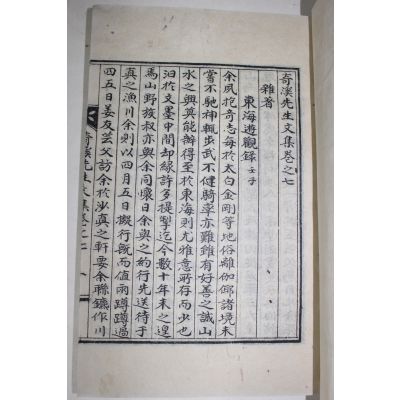 奇溪先生文集卷之七
雜著
東海遊觀錄 壬子
余夙抱奇志每於太白金剛等地俗離伽倻諸境未
嘗不馳神輒步武不健騎率亦難雖有好善之誠山
水之興莫能辦得至於東海則尤雅意所存而少也
汨於文墨中間却緣許多提掣迄今數十年未之遑
馬山野族叔亦與余同懷日余與之約行先送待于
眞之漁川余則以四月五日撥行旣而値雨蹲蹲過
四五日姜友芸父訪余於沙眞之軒要余聯鑣作川
奇溪先生文集卷之七 一